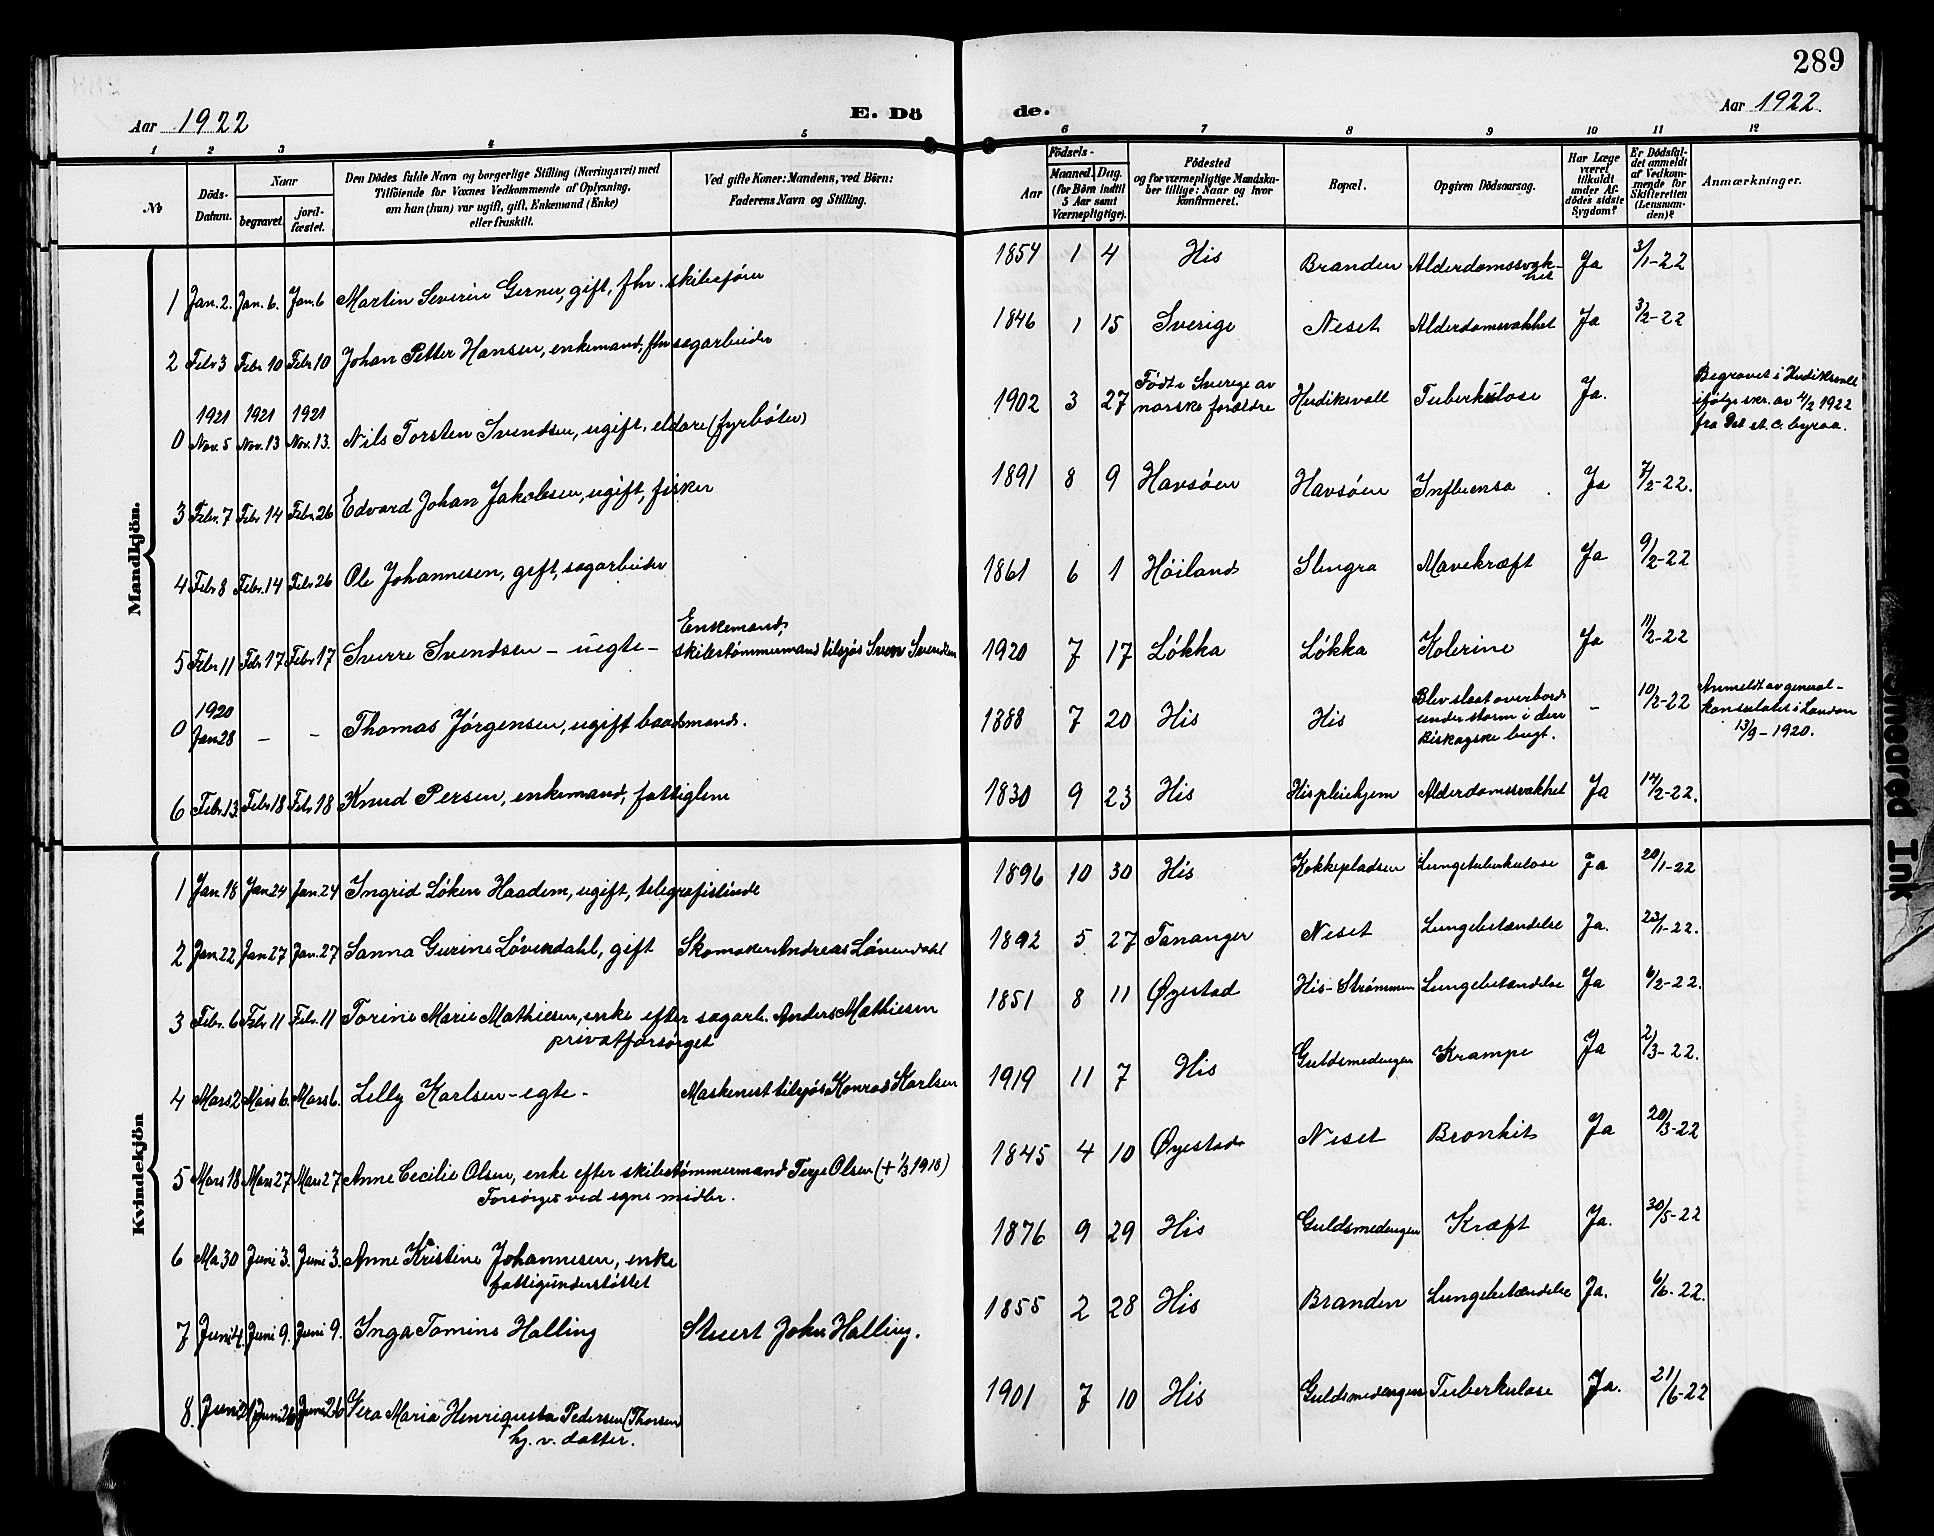 289
Aar 1922
E. Dö de.
Aar 1922.
1 2 3 4 5 6 7 8 9 10 11 12
No
Döds-Datum.
Naar
begravet.
jord-fæstet.
Den Dödes fulde Navn og borgerlige Stilling (Næringsvei) med
Tilföiende for Voxnes Vedkommende af Oplysning,
om han (hun) var ugift, gift, Enkemand (Enke)
eller fraskilt.
Ved gifte Koner: Mandens, ved Börn:
Faderens Navn og Stilling.
Födsels-
Aar
Maaned. Dag.
(for Börn indtil
5 Aar samt
Værnepligtige).
Födested
og for værnepligtige Mandska-
ber tillige: Naar og hvor
konfirmeret.
Bopæl.
Opgiven Dödsaarsag.
Har Læge
været
tilkaldt
under Af-
dödes sidste
Sygdom?
Er Dödsfal-
det anmeldt
af Vedkom-
mende for
Skifteretten
(Lensman-
den)?
Anmærkninger.
Mandkjön.
1 Jan. 2. Jan. 6. Jan. 6 Martin Severin Gerner, gift, fhv. skibsfører 1854 1 4 His Branden Alderdomssvak-
het Ja 3/1-22
2 Febr 3 Febr 10 Febr 10 Johan Petter Hansen, enkemand, fhv sagarbeider 1846 1 15 Sverige Neset Alderdomssvakhet Ja 3/2-22
1921 1921 1921
0 Nov. 5 Nov. 13 Nov. 13. Nils Torsten Svendsen, ugift, eldare (fyrbøter) 1902 3 27 Født i Sverige av
norske forældre Hudiksvall Tuberkulose Ja. Begravet i Hudiksvall
ifølge skr. av 4/2 1922
fra Det st. c. byraa.
3 Febr. 7 Febr 14 Febr. 26 Edvard Johan Jakobsen, ugift, fisker 1891 8 9 Havsøen Havsøen Influensa Ja 7/2-22.
4 Febr 8 Febr. 14 Febr 26 Ole Johannesen, gift, sagarbeider 1861 6 1 Høiland Slengra Mavekræft Ja 9/2-22
5 Febr 11 Febr 17 Febr 17 Sverre Svendsen - uegte - Enkemand,
skibstømmermand tilsjøs Sven Svendsen 1920 7 17 Løkka Løkka Kolerine Ja 11/2-22
1920
0 Jan 28 - - Thomas Jørgensen, ugift baadsmand. 1888 7 20 His His Blev slaat overbord
under storm i den
Biskayske bugt. - 10/2-22 Anmeldt av general-
konsulatet i London
13/9-1920.
6 Febr. 13 Febr 18 Febr 18 Knud Persen, enkemand, fattiglem 1830 9 23 His His pleiehjem Alderdomssvakhet Ja 14/2-22.
Kvindekjön
1 Jan. 18 Jan 24 Jan. 24 Ingrid Løken Haadem, ugift, telegrafistinde 1896 10 30 His Kokkepladsen Lungetuberkulose Ja 20/1-22
2 Jan. 22 Jan 27 Jan. 27 Sanna Gurine Løvendahl, gift Skomaker Andreas Løvendahl 1892 5 27 Tananger Neset Lungebetændelse Ja. 23/1-22.
3 Febr. 6 Febr 11 Febr. 11 Torine Marie Mathiesen, enke efter sagarb. Anders Mathiesen
privatforsørget 1851 8 11 Øyestad His-Strømmen Lungebetændelse Ja 6/2-22.
4 Mars 2 Mars 6. Mars 6. Lilly Karlsen - egte - Maskenist tilsjøs Konrad Karlsen 1919 11 7 His Guldsmedengen Krampe Ja 2/3-22.
5 Mars 18 Mars 27 Mars 27 Anne Cecilie Olsen, enke efter skibstømmermand Terje Olsen (+ 1/3 1918)
Forsørges ved egne midler. 1845 4 10 Øyestad Neset Bronkit Ja 20/3-22
6 Ma. 30 Juni 3. Juni 3. Anne Kristine Johannesen, enke
fattigunderstøttet 1876 9 29 His Guldsmedengen Kræft Ja. 30/5-22
7 Juni 4. Juni 9. Juni 9. Inga Tomine Halling Stuert John Halling. 1855 2 28 His Branden Lungebetændelse Ja. 6/6-22.
8. Juni 21 Juni 26 Juni 26 Vera Maria Henriqusta Pedersen (Thorsen
hj. v. datter. 1901 7 10 His Guldsmedengen Tuberkulose Ja. 21/6-22
Smeared Ink